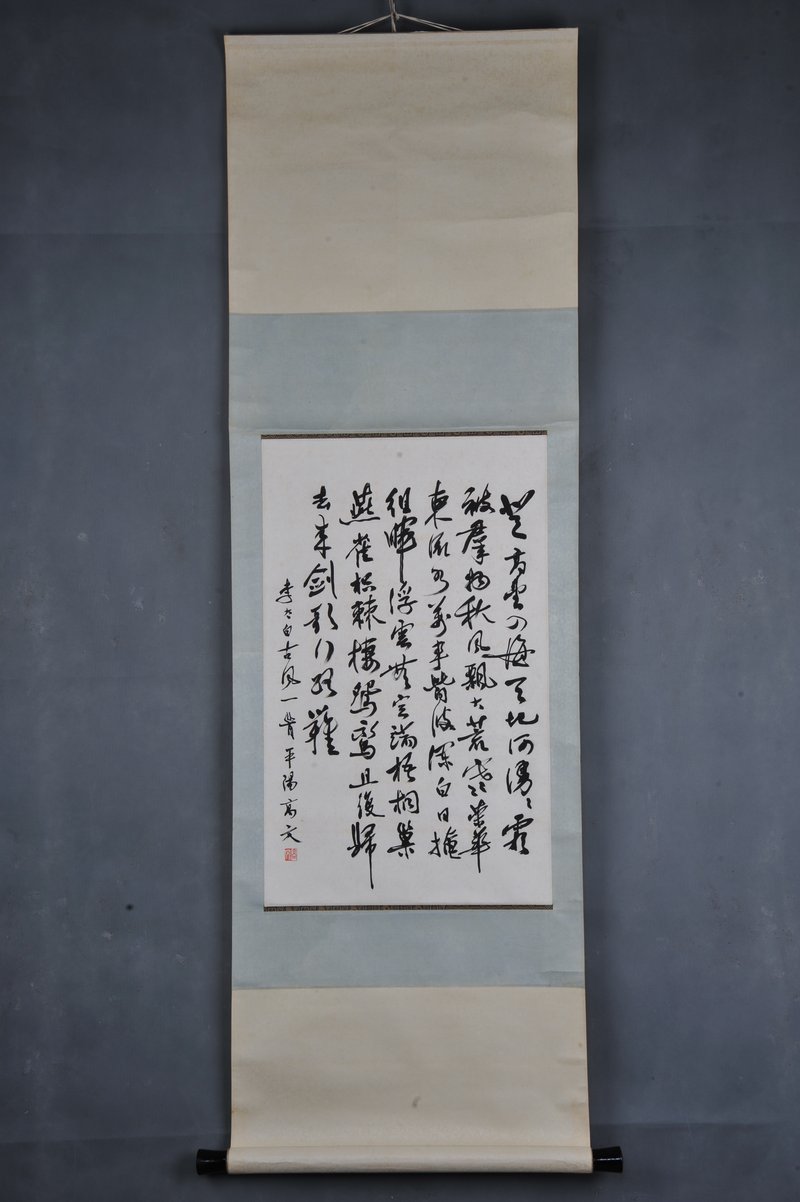 登高望四海天地何漫漫霜
被群物秋風飄大荒寒榮華
東流水萬事皆波瀾白日掩
徂暉浮雲無定端梧桐巢
燕雀枳棘棲鴛鸞且復歸
去來劍歌行路難
李太白古風一首平陽高文